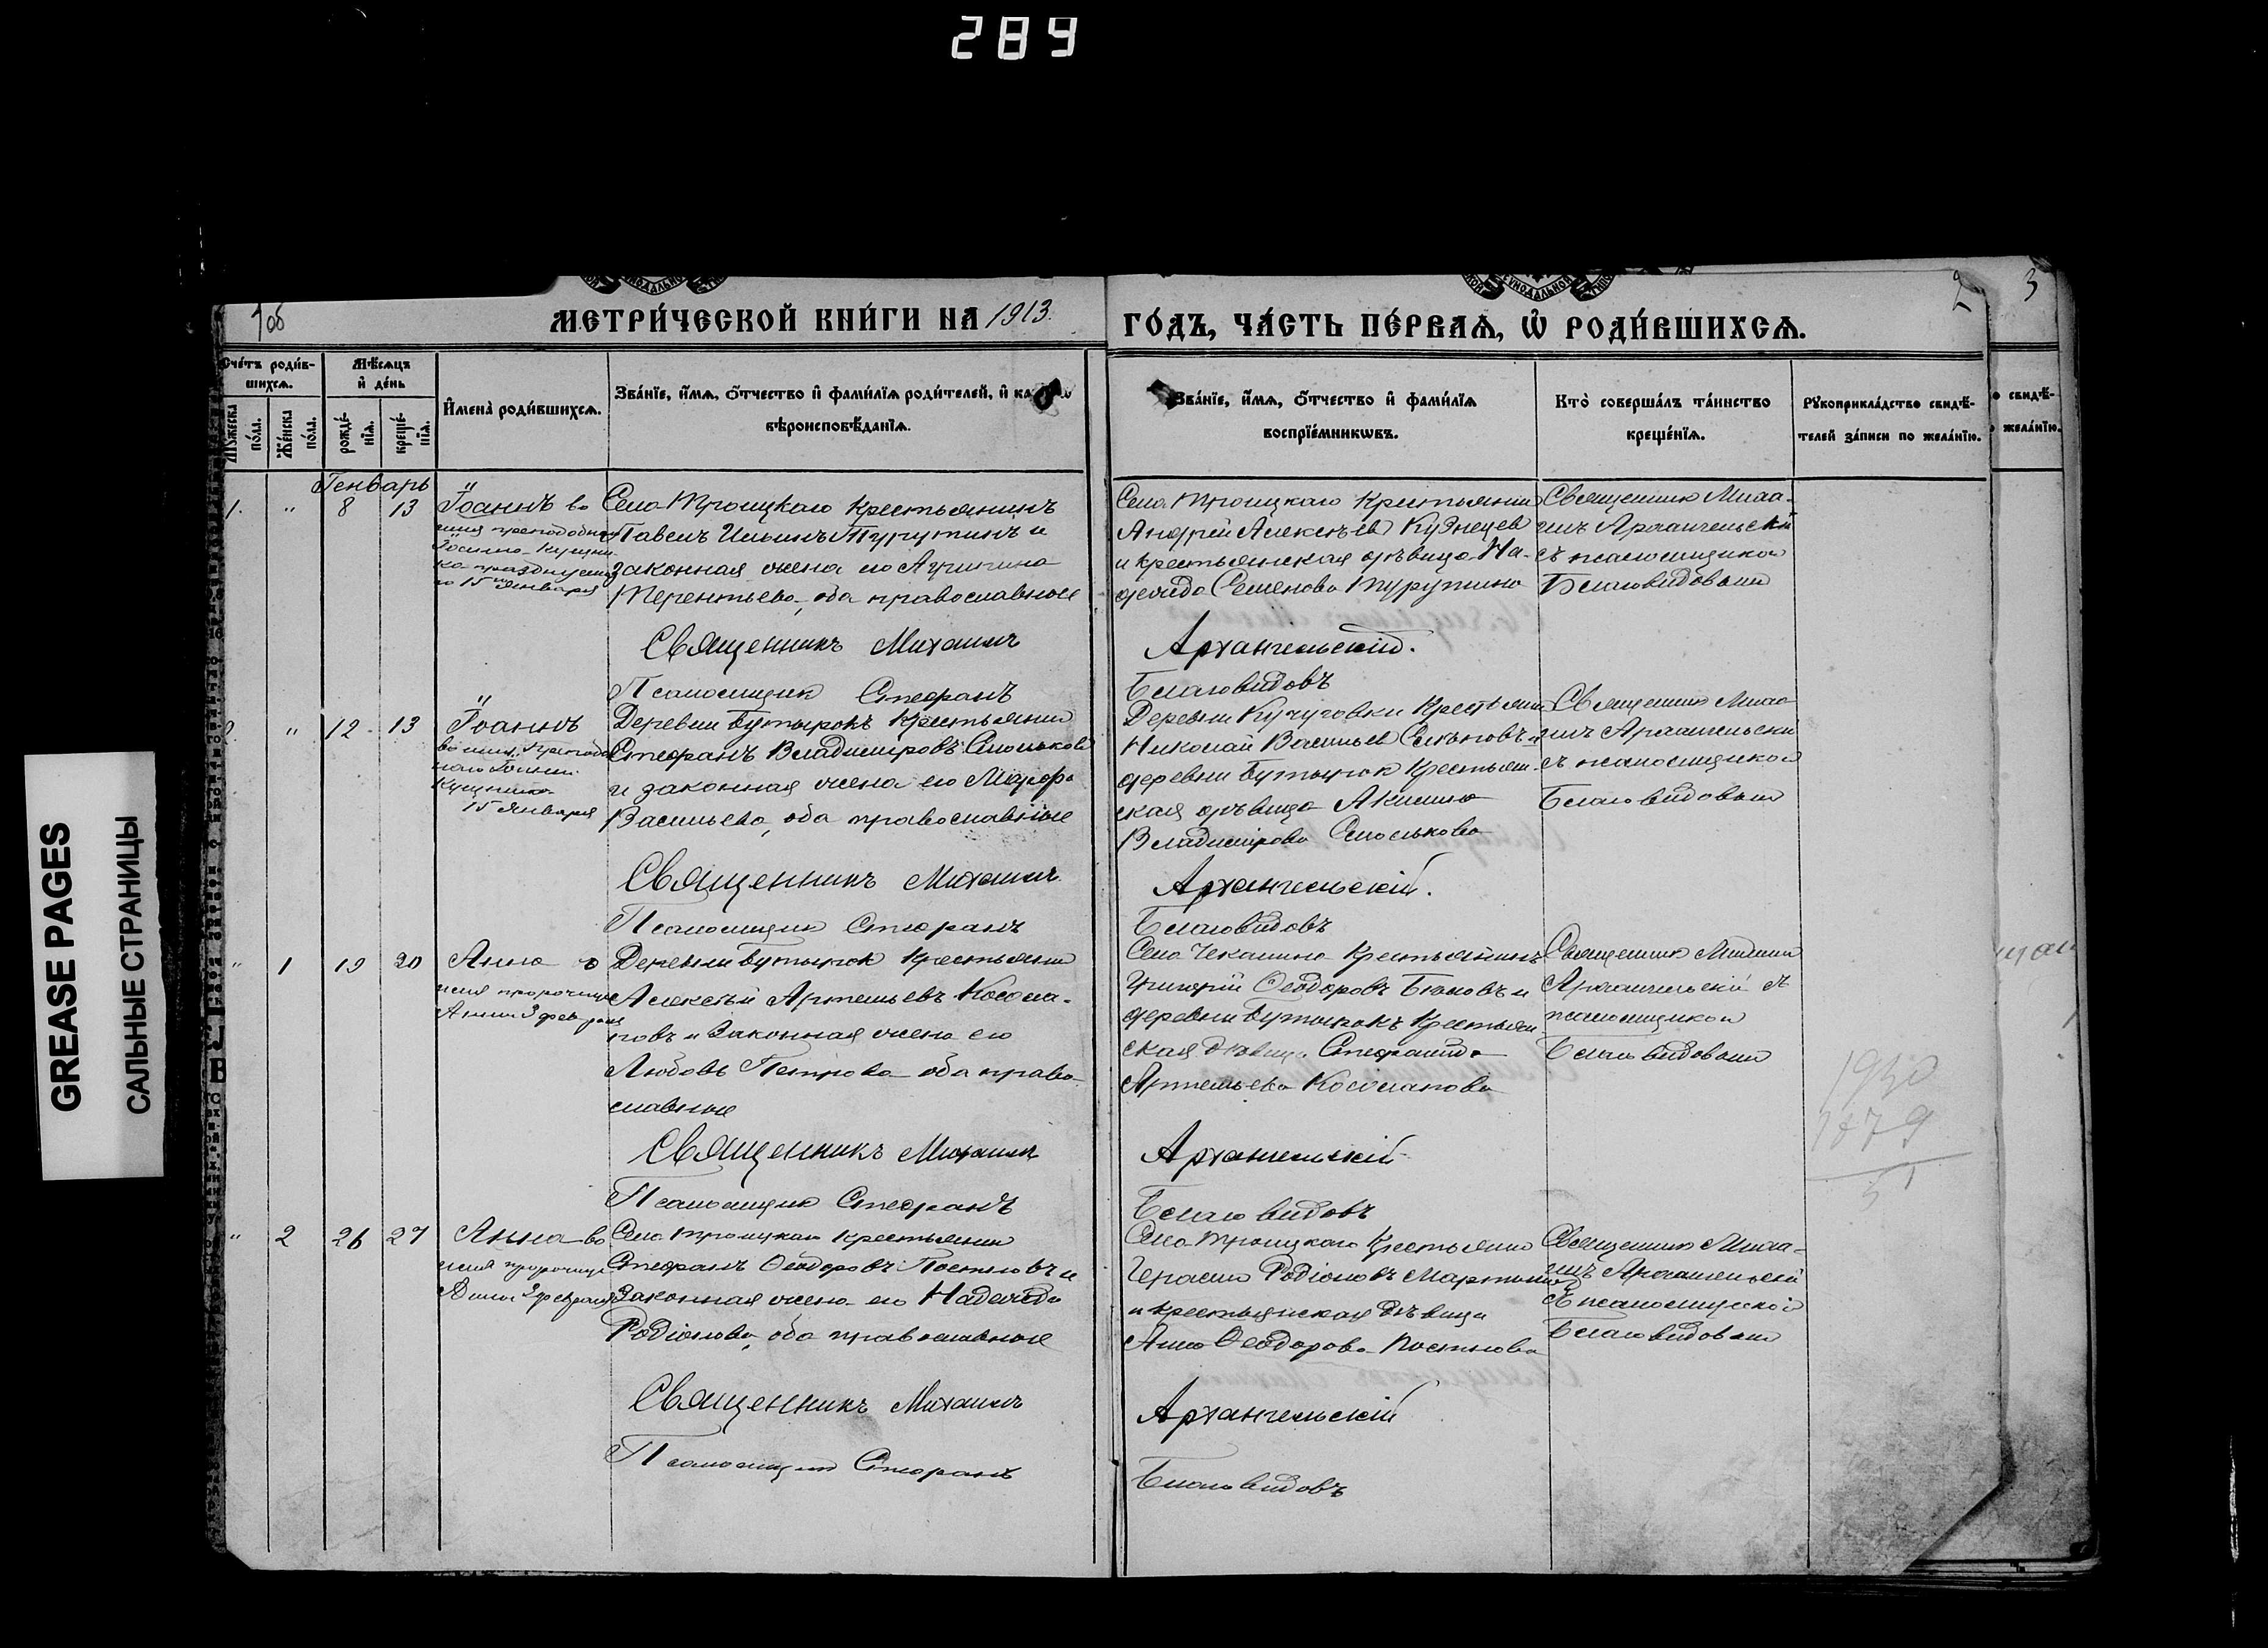 289
GREASE PAGES
САЛЬНЫЕ СТРАНИЦЫ
1об
МЕТРИ́ЧЕСКОЙ КНИ́ГИ НА 1913.
ГО́ДЪ, ЧА́СТЬ ПЕ́РВАѦ, Ѡ҆ РОДИ́ВШИХСѦ.
2
3
Сче́тъ роди́в-
шихсѧ.
Мѣ́сѧцъ
и҆ де́нь
Мꙋ́жеска
по́ла.
Же́нска
по́ла.
рожде́-
нїѧ.
креще́-
нїѧ.
И҆мена̀ роди́вшихсѧ.
Зва́нїе, и҆́мѧ, ѻ҆́тчество и҆ фами́лїѧ роди́телей, и҆ ка
вѣроисповѣ́данїѧ.
Зва́нїе, и҆́мѧ, ѻ҆́тчество и҆ фами́лїѧ
воспрїе́мникѡвъ.
Кто̀ соверша́лъ та́инство
креще́нїѧ.
Рꙋкоприкла́дство свидѣ́-
телей за́писи по жела́нїю.
свидѣ́-
жела́нїю.
Генварь
1. " 8 13
Іоаннъ во
имя преподобнаго
Іоанна Кущни-
ка празднуем
го 15го Января
Села Троицкаго Крестьянинъ
Павелъ Ильинъ Турутинъ и
законная жена его
Терентьева, оба православные
Священникъ Михаилъ
Псаломщикъ Стефанъ
Села Троицкаго Крестьянин
Андрей Алексѣев Кузнецев
и крестьянская дѣвица На-
дежда Семенова Турутина
Архангельскій.
Благовидовъ
Священник Миха-
илъ Архангельскій
съ псаломщиком
Благовидовым
" 12 13
Іоаннъ
во имя Преподоб
наго Іоанна
Кущника
15 Января
Деревни Бутырокъ Крестьянин
Стефанъ Владиміровъ
и законная жена его Марфа
Васильева, оба православные
Священникъ Михаилъ
Псаломщик Стефанъ
Деревни Кучуговки Крестьянин
Николай Васильев и
деревни Бутырок Крестьян-
ская дѣвица Акилина
Владимірова
Архангельскій.
Благовидовъ
Священник Миха
илъ Архангельскій
съ псаломщиком
Благовидовым
" 1 19 20
Анна во
имя пророчицы
Анны 3 февраля
Деревни Бутырок Крестьянин
Алексѣй Артемьевъ Косола-
повъ и Законная жена его
Любовь Петрова оба право-
славные
Священникъ Михаилъ
Псаломщик Стефанъ
Села Чекалина Крестьянинъ
Григорій Ѳеодоровъ и
деревни Бутырокъ Крестьян-
ская дѣвица Стефанида
Артемьева Косолапова
Архангельскій
Благовидовъ
Священник Михаил
Архангельскій съ
псаломщиком
Благовидовым
1930
1879
51
" 2 26 27
Анна во
имя пророчицы
Анны 3 февраля
Села Троицкаго Крестьянин
Стефанъ Ѳеодоровъ Постновъ и
Законная жена его Надежда
Родіонова, оба православные
Священникъ Михаилъ
Псаломщик Стефанъ
Села Троицкаго Крестьянин
Герасим Родіоновъ Мартынов
и крестьянская дѣвица
Анна Ѳеодорова Постнова
Архангельскій
Благовидовъ
Священник Миха-
илъ Архангельскій
с псаломщиком
Благовидовым